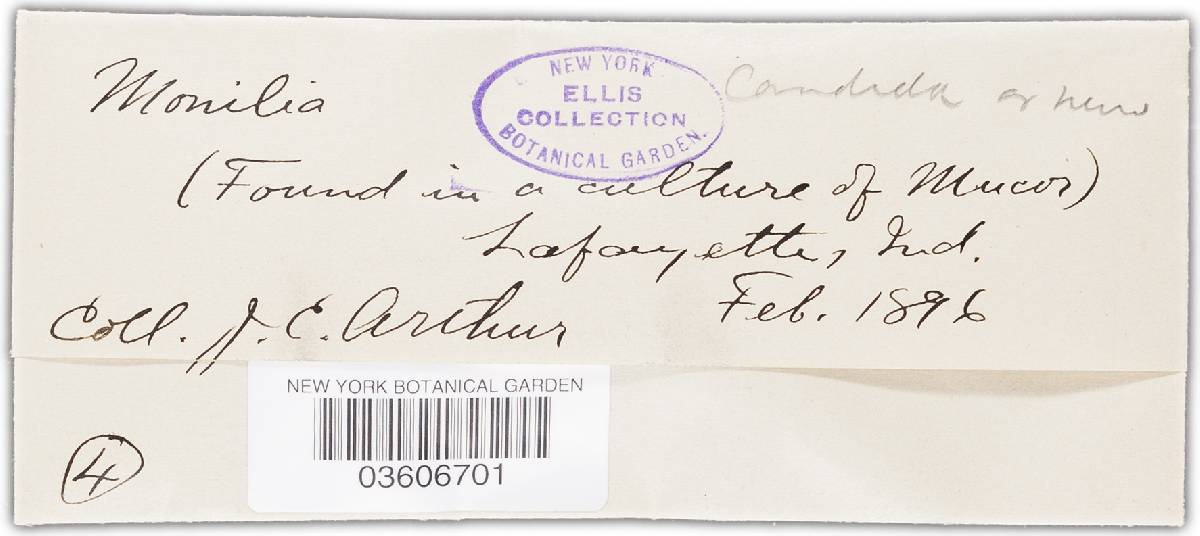 Monilia
NEW YORK
ELLIS
COLLECTION
BOTANICAL GARDEN.
Candida or new
(Found in a culture of Mucor)
Lafayette, Ind.
Coll. J. C. Arthur
Feb. 1896
NEW YORK BOTANICAL GARDEN
03606701
4